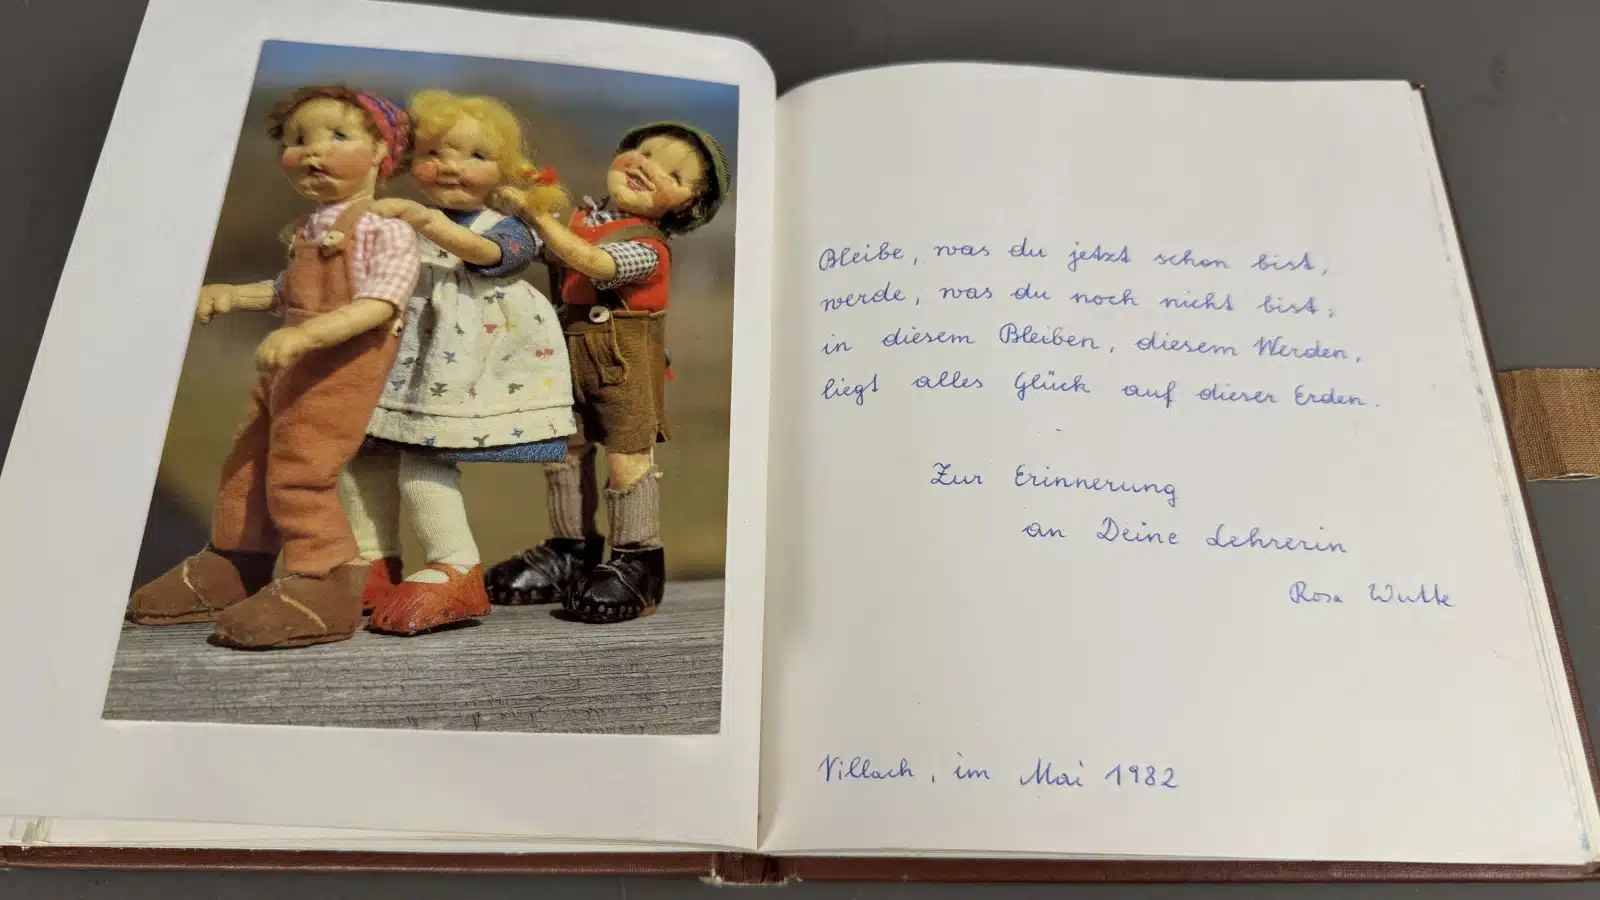 Bleibe, was du jetzt schon bist,
werde, was du noch nicht bist;
in diesem Bleiben, diesem Werden,
liegt alles Glück auf dieser Erden.
Zur Erinnerung
an Deine Lehrerin
Rosa Wutte
Villach, im Mai 1982